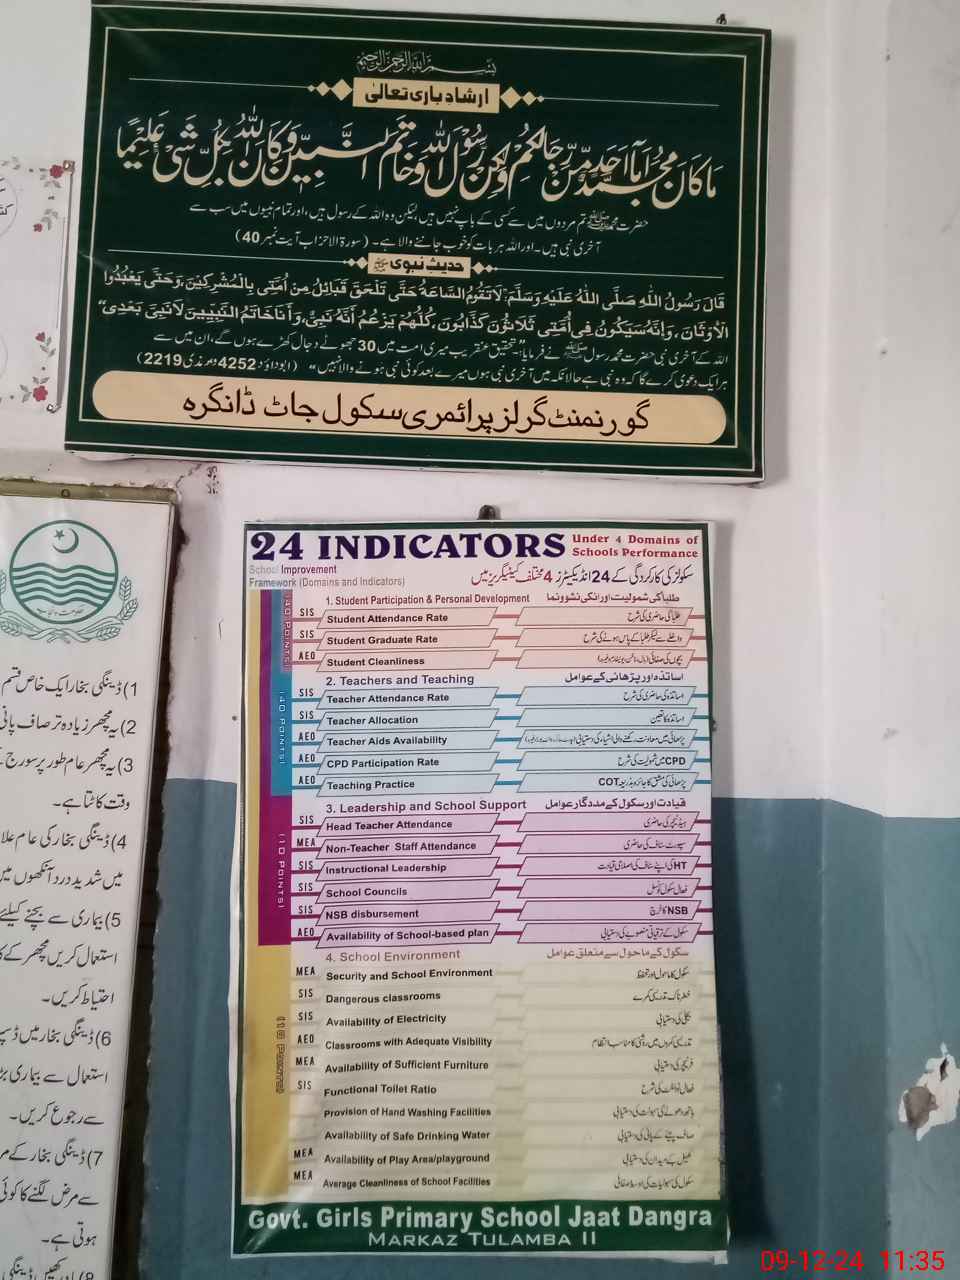 بسم اللہ الرحمن الرحیم
ارشاد باری تعالیٰ
مَا كَانَ مُحَمَّدٌ اَبَا اَحَدٍ مِّنْ رِّجَالِكُمْ وَلٰكِنْ رَّسُوْلَ اللّٰهِ وَخَاتَمَ النَّبِيّٖنَ وَكَانَ اللّٰهُ بِكُلِّ شَيْءٍ عَلِيْمًا
حضرت محمد ﷺ تم مردوں میں سے کسی کے باپ نہیں ہیں، لیکن وہ اللہ کے رسول ہیں، اور تمام نبیوں میں سب سے
آخری نبی ہیں۔ اور اللہ ہر بات کو خوب جاننے والا ہے۔ (سورۃ الاحزاب آیت نمبر 40)
حدیث نبوی ﷺ
قَالَ رَسُولُ اللّٰهِ صَلَّى اللّٰهُ عَلَيْهِ وَسَلَّمَ: "لَا تَقُومُ السَّاعَةُ حَتَّى تَلْحَقَ قَبَائِلُ مِنْ أُمَّتِى بِالْمُشْرِكِيْنَ، وَحَتَّى يَعْبُدُوا
الْأَوْثَانَ، وَإِنَّهُ سَيَكُونُ فِى أُمَّتِى ثَلَاثُوْنَ كَذَّابُونَ، كُلُّهُمْ يَزْعُمُ أَنَّهُ نَبِىٌّ، وَأَنَا خَاتَمُ النَّبِيِّينَ لَا نَبِىَّ بَعْدِى"
اللہ کے آخری نبی حضرت محمد رسول ﷺ نے فرمایا: "تحقیق عنقریب میری امت میں 30 جھوٹے دجال کھڑے ہوں گے، ان میں سے
ہر ایک دعویٰ کرے گا کہ وہ نبی ہے حالانکہ میں آخری نبی ہوں میرے بعد کوئی نبی ہونے والا نہیں" (ابوداؤد 4252 ترمذی 2219)
گورنمنٹ گرلز پرائمری سکول جاٹ ڈانگرہ
24 INDICATORS Under 4 Domains of
Schools Performance
School Improvement
Framework (Domains and Indicators)
سکولز کی کارکردگی کے 24 انڈیکیٹرز 4 مختلف کیٹیگریز میں
(40 POINTS)
1. Student Participation & Personal Development طلبا کی شمولیت اور انکی نشوونما
SIS Student Attendance Rate طلبا کی حاضری کی شرح
SIS Student Graduate Rate داخلے سے لیکر طلبا کے پاس ہونے کی شرح
AEO Student Cleanliness بچوں کی صفائی
(40 POINTS)
2. Teachers and Teaching اساتذہ اور پڑھائی کے عوامل
SIS Teacher Attendance Rate اساتذہ کی حاضری کی شرح
SIS Teacher Allocation اساتذہ کا تعین
AEO Teacher Aids Availability پڑھائی میں معاونت رکھنے والی اشیاء کی دستیابی
AEO CPD Participation Rate CPD میں شمولیت کی شرح
AEO Teaching Practice پڑھائی کی مشق کا جائزہ بذریعہ COT
(10 POINTS)
3. Leadership and School Support قیادت اور سکول کے مددگار عوامل
SIS Head Teacher Attendance ہیڈ ٹیچر کی حاضری
MEA Non-Teacher Staff Attendance سپورٹ سٹاف کی حاضری
SIS Instructional Leadership HT کی اپنے سٹاف کی اصلاحی قیادت
SIS School Councils فعال سکول کونسل
SIS NSB disbursement NSB کا خرچ
AEO Availability of School-based plan سکول کے ترقیاتی منصوبے کی دستیابی
(10 POINTS)
4. School Environment سکول کے ماحول سے متعلق عوامل
MEA Security and School Environment سکول کا ماحول اور تحفظ
SIS Dangerous classrooms خطرناک تدریسی کمرے
SIS Availability of Electricity بجلی کی دستیابی
AEO Classrooms with Adequate Visibility تدریسی کمروں میں روشنی کا مناسب انتظام
MEA Availability of Sufficient Furniture فرنیچر کی دستیابی
SIS Functional Toilet Ratio فعال ٹوائلٹ کی شرح
Provision of Hand Washing Facilities ہاتھ دھونے کی سہولت کی دستیابی
Availability of Safe Drinking Water صاف پینے کے پانی کی دستیابی
MEA Availability of Play Area/playground کھیل کے میدان کی دستیابی
MEA Average Cleanliness of School Facilities سکول کی سہولیات کی اوسط صفائی
Govt. Girls Primary School Jaat Dangra
MARKAZ TULAMBA II
1) ڈینگی بخار ایک خاص قسم
2) یہ مچھر زیادہ تر صاف پانی
3) یہ مچھر عام طور پر سورج
وقت کاٹتا ہے۔
4) ڈینگی بخار کی عام علا
میں شدید درد، آنکھوں میں
5) بیماری سے بچنے کیلئے
استعمال کریں مچھر کے کا
احتیاط کریں۔
6) ڈینگی بخار میں ڈسپر
استعمال سے بیماری بڑ
سے رجوع کریں۔
7) ڈینگی بخار کے مر
سے مرض لگنے کا کوئی
ہوتی ہے۔
09-12-24 11:35